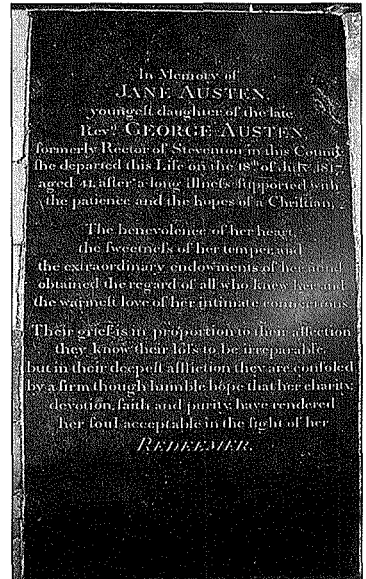 In Memory of
JANE AUSTEN,
youngeſt daughter of the late
Revd. GEORGE AUSTEN,
formerly Rector of Steventon in this County
ſhe departed this Life on the 18th of July 1817,
aged 41, after a long illneſs ſupported with
the patience and the hopes of a Chriſtian.
The benevolence of her heart,
the ſweetneſs of her temper, and
the extraordinary endowments of her mind
obtained the regard of all who knew her and
the warmeſt love of her intimate connections.
Their grief is in proportion to their affection
they know their loſs to be irreparable,
but in their deepeſt affliction they are conſoled
by a firm though humble hope that her charity,
devotion, faith and purity, have rendered
her ſoul acceptable in the ſight of her
REDEEMER.